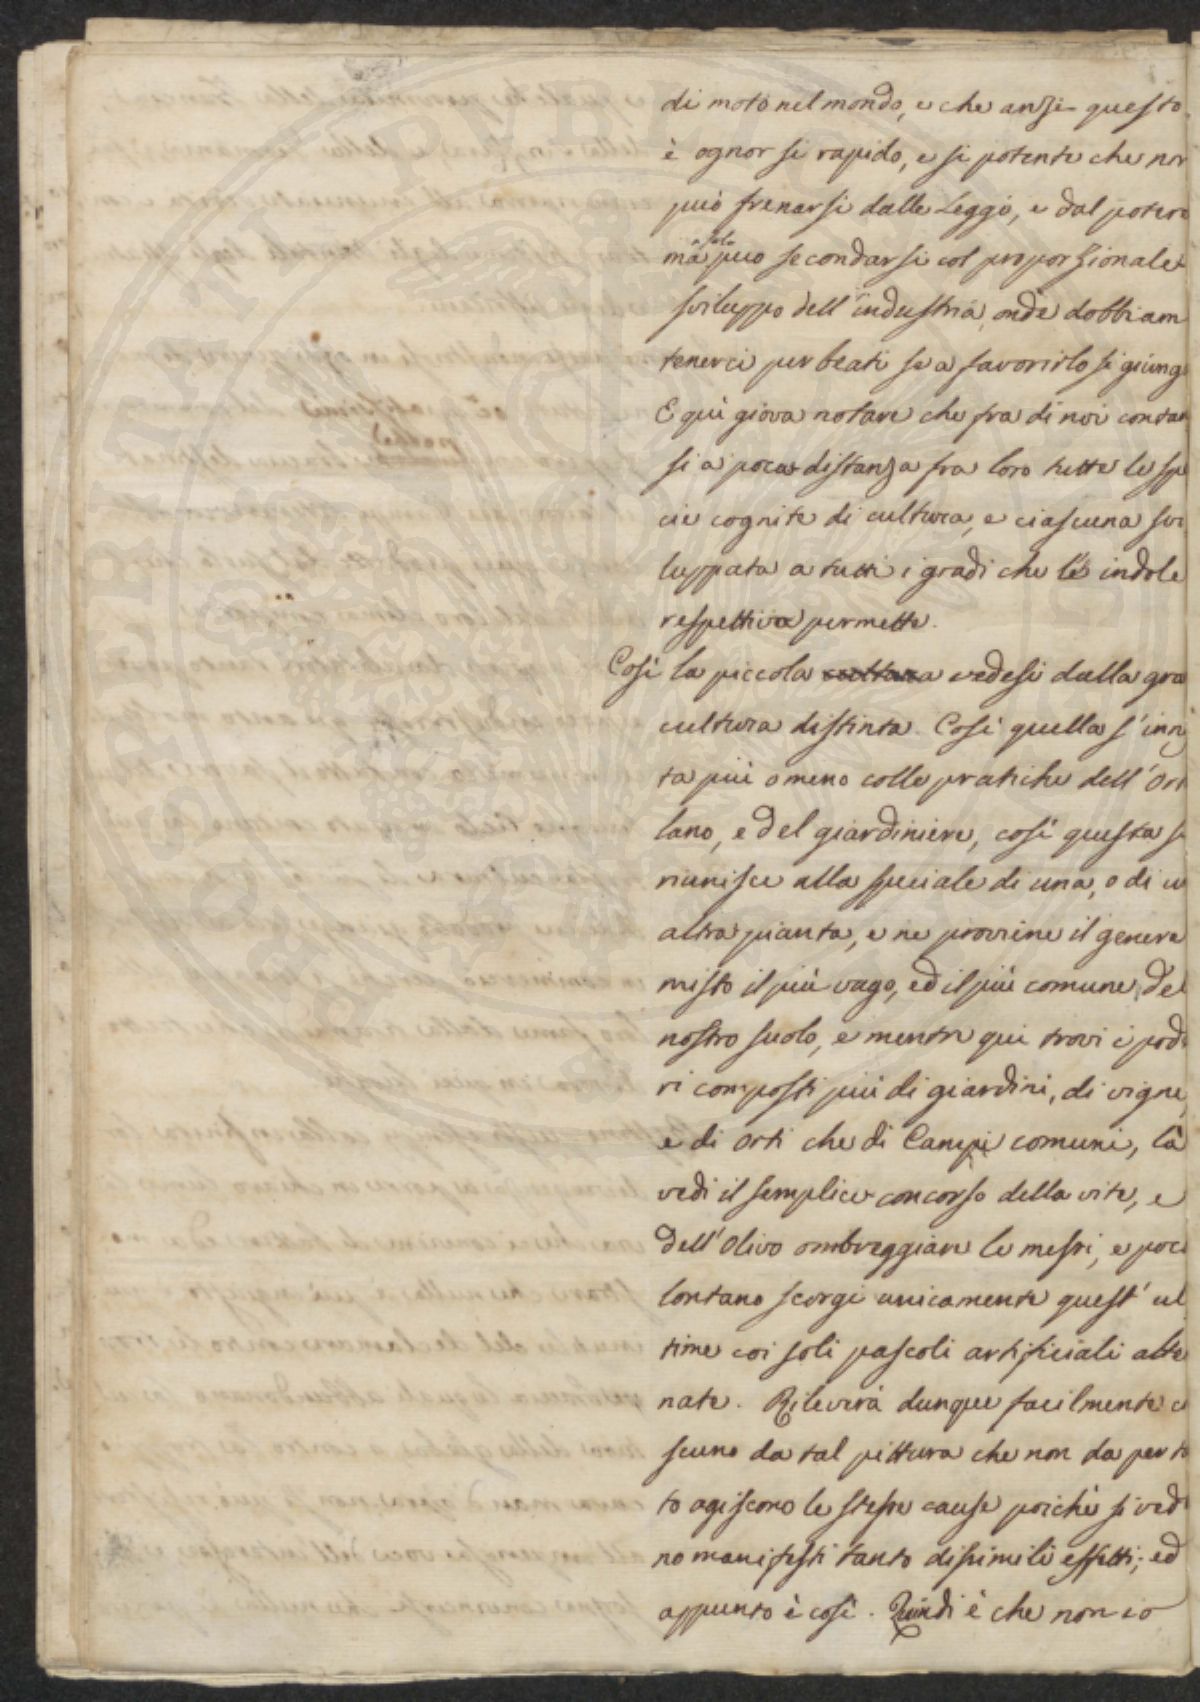 di moto nel mondo, e che anzi questo
è ognor si rapido, e si potente che non
può frenarsi dalle Leggi, e dal potere
ma solo può secondarsi col proporzionale
sviluppo dell'industria, onde dobbiam
tenerci per beati se a favorirlo si giung
E quì giova notare che fra di noi contan
si a poca distanza fra loro tutte le spe
cie cognite di cultura, e ciascuna svi
luppata a tutti i gradi che le indole
respettiva permette.
Così la piccola cultura vedesi dalla gra
cultura distinta. Così quella s'inne
ta più o meno colle pratiche dell'Ort
lano, e del giardiniere, così questa si
riunisce alla speciale di una, o di u
altra pianta, e ne proviene il genere
misto il più vago, ed il più comune del
nostro suolo, e mentre qui trovi i pode
ri composti più di giardini, di vigne,
e di orti che di Campi comuni, là
vedi il semplice concorso della vite, e
dell'Olivo ombreggiare le messi, e poco
lontano scorgi unicamente quest'ul
time coi soli pascoli artificiali alte
nate. Rileverà dunque facilmente ci
scuno da tal pittura che non da per tu
to agiscono le stesse cause poichè si ved
no manifesti tanto dissimili effetti; ed
appunto è così. Quindi è che non io